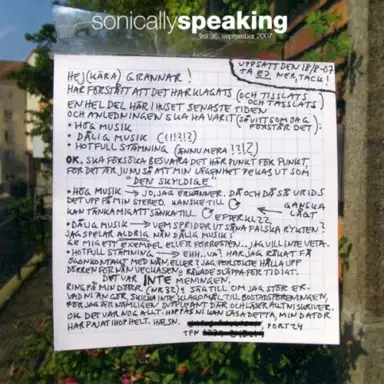 sonicallyspeaking
vol 36, september 2007
UPPSATT DEN 18/8-07
TA EJ NER, TACK!
HEJ (KÄRA) GRANNAR!
HAR FÖRSTÅTT ATT DET HAR KLAGATS (OCH TISSLATS OCH TASSLATS)
EN HEL DEL HÄR I HUSET SENASTE TIDEN
OCH ANLEDNINGEN SKA HA VARIT (SÅ VITT SOM JAG FÖRSTÅR DET):
• HÖG MUSIK
• DÅLIG MUSIK (!!!?!?)
• HOTFULL STÄMNING (ÄNNU MERA !?!?)
OK. SKA FÖRSÖKA BESVARA DET HÄR PUNKT FÖR PUNKT,
FÖR DET ÄR JU NU SÅ ATT MIN LÄGENHET PEKAS UT SOM
"DEN SKYLDIGE"
• HÖG MUSIK → JO, JAG ERKÄNNER. DÅ OCH DÅ SÅ VRIDS
DET UPP PÅ MIN STEREO. KANSKE TILL
GANSKA LÅGT
KAN TÄNKA MIG ATT SÄNKA TILL
EFTER KL 22
• DÅLIG MUSIK → VEM SPRIDER UT SÅNA FALSKA RYKTEN?
JAG SPELAR ALDRIG NÅN DÅLIG MUSIK!
GE MIG ETT EXEMPEL ELLER FÖRRESTEN... JAG VILL INTE VETA.
• HOTFULL STÄMNING → EHH... VA? HAR JAG RÅKAT FÅ
ÖGONKONTAKT MED NÅN ELLER? JAG FÖRSÖKTE HÅLLA UPP
DÖRREN FÖR NÅN VECKAN. RÅKADE SLÄPPA FÖR TIDIGT.
DET VAR INTE MENINGEN.
RING PÅ MIN DÖRR (NR 32) & SÄG TILL OM JAG STÖR ER.
VAD NI ÄN GÖR, SKICKA INTE KLAGOMÅL TILL BOSTADSFÖRENINGEN,
FÖR JAG ÄR NÄMLIGEN SUPPLEANT DÄR OCH LÄSER ALLT NI SKRIVER.
OK DET VAR NOG ALLT. HOPPAS NI KAN LÄSA DETTA, MIN DATOR
HAR PAJAT IHOP HELT. HÄLSN. PORT 24
TFN